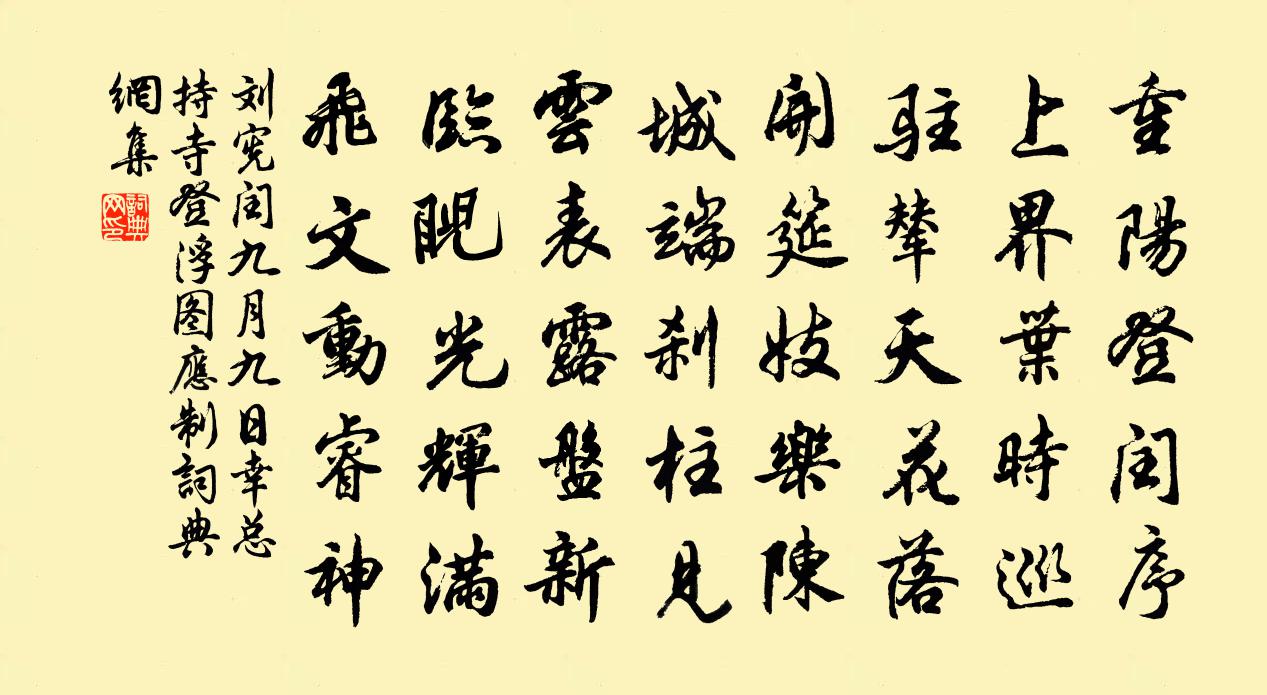 重陽登閏序
上界葉時巡
駐輦天花落
開筵妓樂陳
城端刹柱見
雲表露盤新
臨睨光輝滿
飛文動睿神
刘宪閏九月九日幸总
持寺登浮图應制詞典
網集
詞典
网印